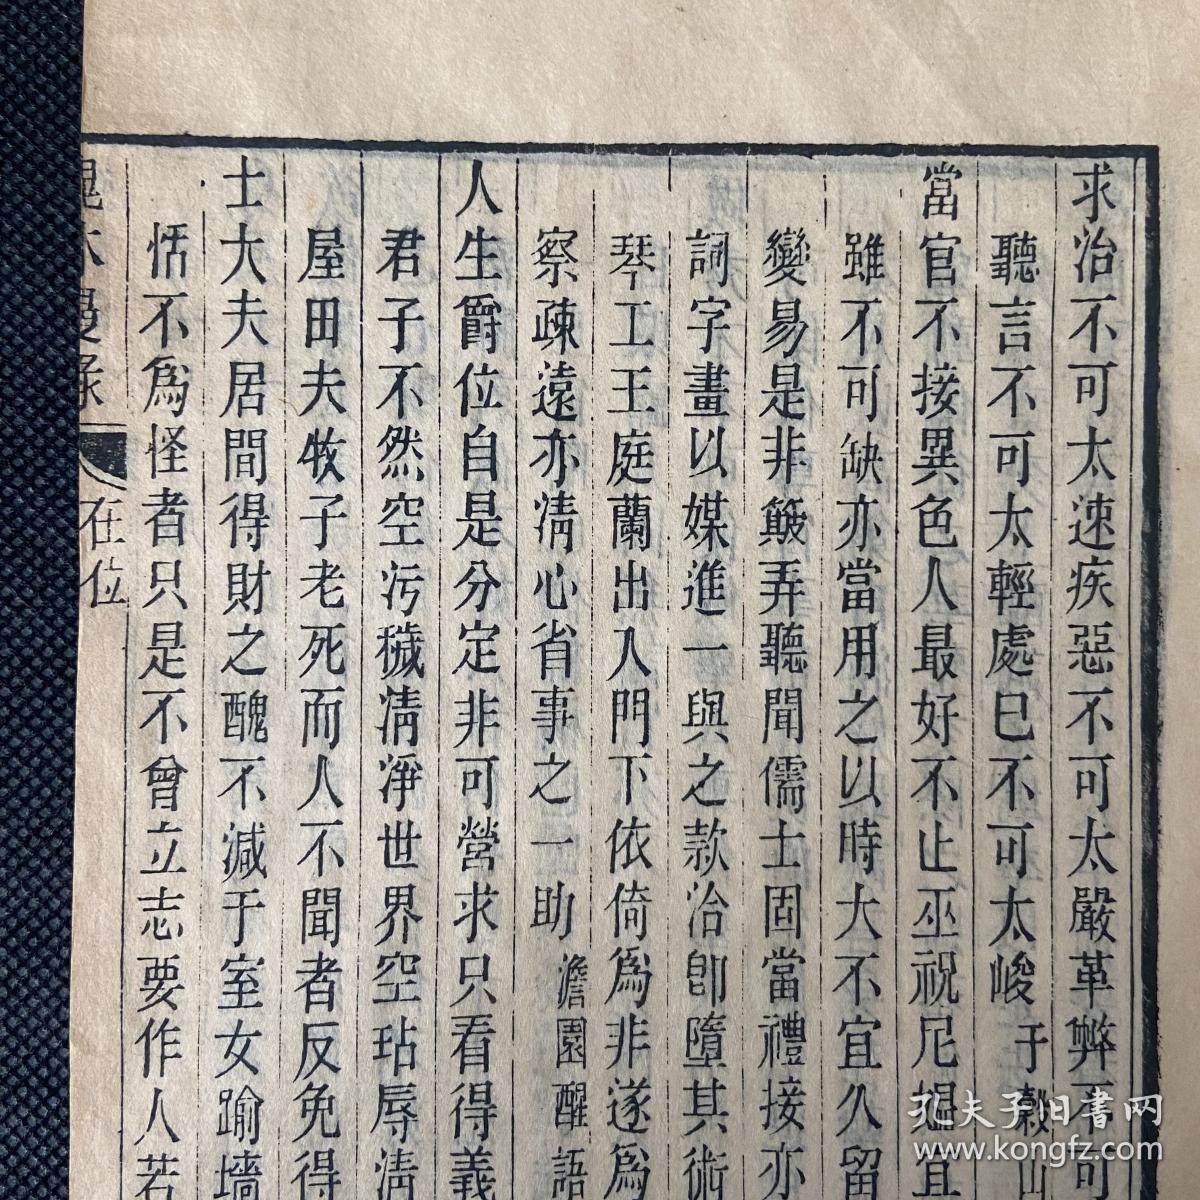 求治不可太速疾惡不可太嚴革弊不可
聽言不可太輕處已不可太峻 于穀山
當官不接異色人最好不止巫祝尼媼宜
雖不可缺亦當用之以時大不宜久留
變易是非簸弄聽聞儒士固當禮接亦
詞字畫以媒進一與之款洽卽墮其術
琴工王庭蘭出入門下依倚爲非遂爲
察疎遠亦淸心省事之一助 澹園醒語
人生爵位自是分定非可營求只看得義
君子不然空污穢淸淨世界空玷辱淸
屋田夫牧子老死而人不聞者反免得
士大夫居間得財之醜不減于室女踰墻
恬不爲怪者只是不曾立志要作人若
在位
孔夫子旧書网
www.kongfz.com